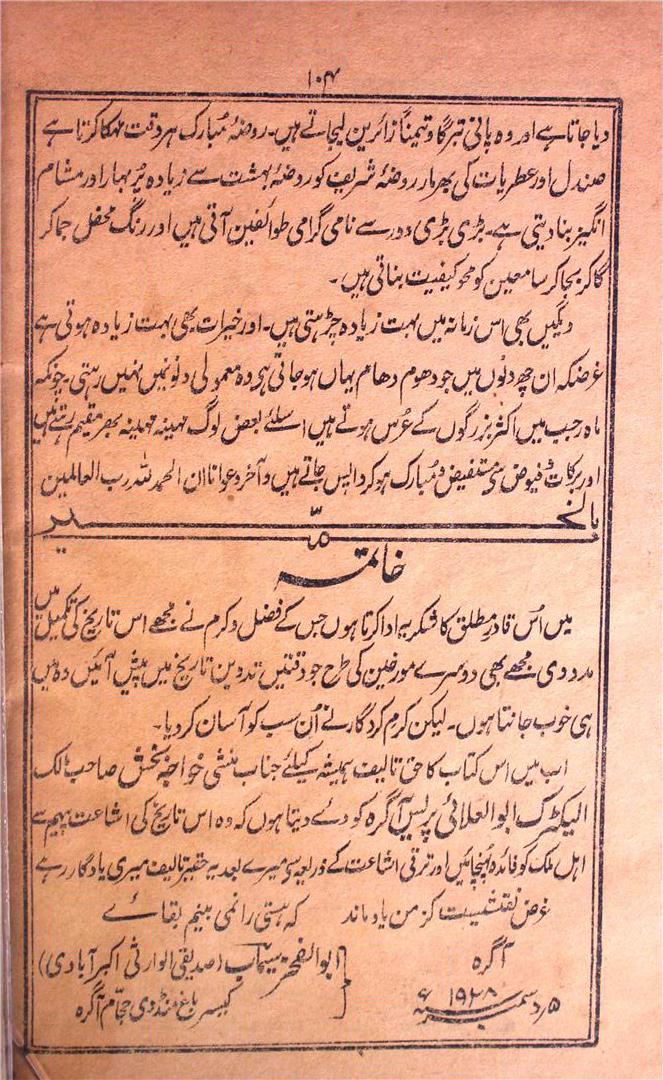 ۱۰۴
دیا جاتا ہے اور وہ پانی تبرکاً و تیمناً زائرین لیجاتے ہیں۔ روضۂ مُبارک ہر وقت مہکا کرتا ہے
صندل اور عطریات کی بھرمار روضۂ شریف کو روضۂ بہشت سے زیادہ پُر بہار اور مشام
انگیز بنا دیتی ہے۔ بڑی بڑی دور سے نامی گرامی طوائفین آتی ہیں اور رنگ محفل جما کر
گا کر بجا کر سامعین کو محوِ کیفیت بناتی ہیں۔
دیگیں بھی اس زمانہ میں بہت زیادہ چڑہتی ہیں۔ اور خیرات بھی بہت زیادہ ہوتی ہے
غرضکہ ان چھ دنوں میں جو دھوم دھام یہاں ہو جاتی ہی وہ معمولی دنوں میں نہیں رہتی۔ چونکہ
ماہ رجب میں اکثر بزرگوں کے عرس ہوتے ہیں اسلئے بعض لوگ مہینہ مہینہ بھر مقیم رہتے ہیں
اور برکات و فیوض سی مستفیض و مُبارک ہو کر واپس جاتے ہیں و آخر دعوانا ان الحمد للہ رب العالمین
بالخیر
خاتمہ
میں اُس قادرِ مطلق کا شکریہ ادا کرتا ہوں جس کے فضل و کرم نے مجھے اس تاریخ کی تکمیل میں
مدد دی۔ مجھے بھی دوسرے مورخین کی طرح جو دقتیں تدوین تاریخ میں پیش آئیں وہ میں
ہی خوب جانتا ہوں۔ لیکن کرم کردگار نے اُن سب کو آسان کر دیا۔
اب میں اس کتاب کا حق تالیف ہمیشہ کیلئے جناب منشی خواجہ بخش صاحب مالک
الیکٹرک ابوالعلائی پریس آگرہ کو دے دیتا ہوں کہ وہ اس تاریخ کی اشاعت پیہم سے
اہل ملک کو فائدہ پہنچائیں اور ترقی اشاعت کے ذریعہ سی میرے بعد یہ حقیر تالیف میری یادگار رہے
غرض نقشیست کز من یاد ماند کہ ہستی را نمی بینم بقائے
آگرہ ابوالفخر سیماب (صدیقی الوارثی اکبرآبادی)
۵ دسمبر ۱۹۲۸ء کیسر باغ منڈوی حجام آگرہ